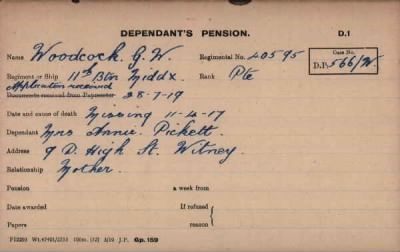 DEPENDANT'S PENSION. D.1
Name Woodcock. G. W. Regimental No. 40595 Case No.
Regiment or Ship 11th Btn Middx. Rank Pte D.P. 566/W.
Application received
Documents received from Paymaster 28-7-19
Date and cause of death Missing 11-4-17
Dependant Mrs Annie Pickett.
Address 9 D. High St. Witney.
Relationship Mother.
Pension a week from
Date awarded If refused
Papers reason
Gp. 159